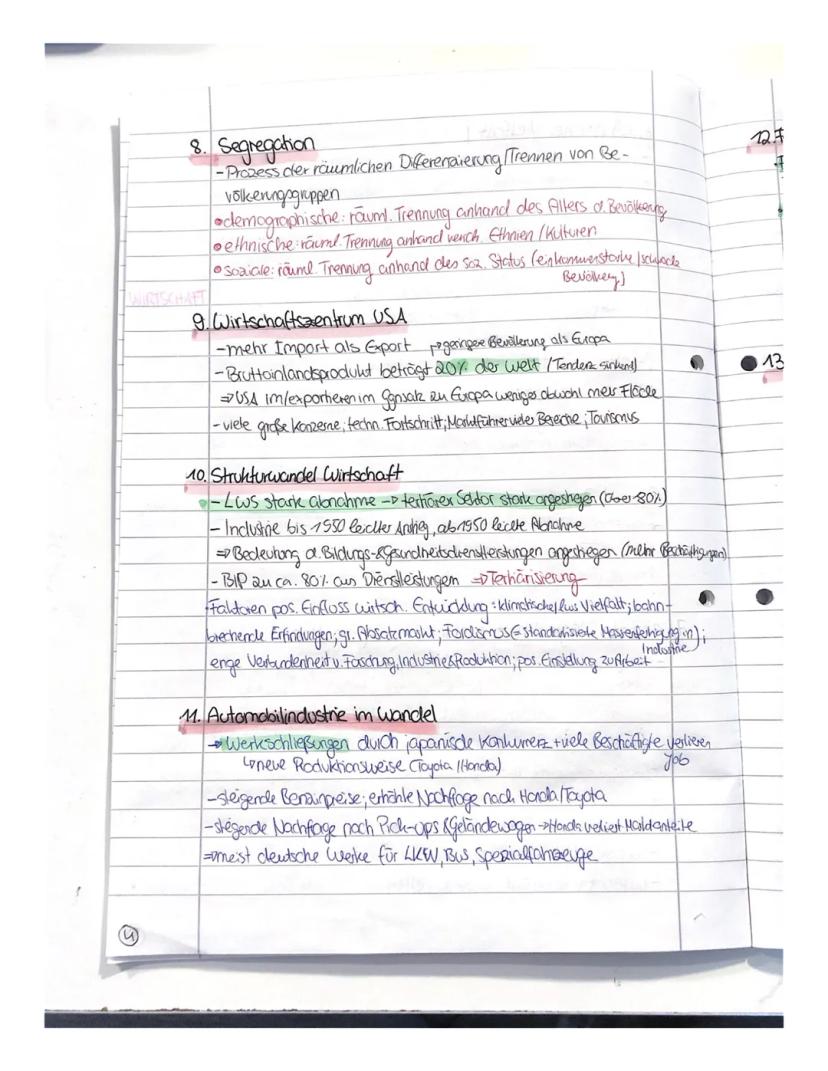 8. Segregation
- Prozess der räumlichen Differenzierung/Trennen von Be-
völkerungsgruppen
• demographische: räuml. Trennung anhand des Alters d. Bevölkerung
• ethnische: räuml. Trennung anhand versch. Ethnien / Kulturen
• soziale: räuml. Trennung anhand des soz. Status (einkommenstarke / schwache
Bevölkerg)
WIRTSCHAFT
9. Wirtschaftszentrum USA
- mehr Import als Export → geringere Bevölkerung als Europa
- Bruttoinlandsprodukt beträgt 20% der Welt (Tendenz sinkend)
⇒ USA im/exportieren im Ggnsatz zu Europa weniger obwohl mehr Fläche
- viele große Konzerne; techn. Fortschritt; Marktführer vieler Bereiche; Tourismus
10. Strukturwandel Wirtschaft
- LWS stark abnahme → tertiärer Sektor stark angestiegen (über 80%)
- Industrie bis 1950 leichter Anstieg, ab 1950 leichte Abnahme
⇒ Bedeutung d. Bildungs- & Gesundheitsdienstleistungen angestiegen (mehr Beschäftigungen)
- BIP zu ca. 80% aus Dienstleistungen ⇒ Tertiärisierung
Faktoren pos. Einfluss wirtsch. Entwicklung: klimatische Vielfalt; bahn-
brechende Erfindungen; gr. Absatzmarkt; Fordismus (= standardisierte Massenfertigung in);
Industrie
enge Verbundenheit v. Forschung, Industrie & Produktion; pos. Einstellung zu Arbeit
11. Automobilindustrie im Wandel
→ Werkschließungen durch japanische Konkurrenz + viele Beschäftigte verlieren
Job
↳ neue Produktionsweise (Toyota / Honda)
- steigende Benzinpreise; erhöhte Nachfrage nach Honda/Toyota
- steigende Nachfrage nach Pick-ups & Geländewagen → Honda verliert Marktanteile
⇒ meist deutsche Werke für LKW, Bus, Spezialfahrzeuge
4
12.
13